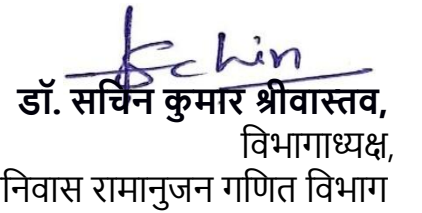 Schin
डॉ. सचिन कुमार श्रीवास्तव,
विभागाध्यक्ष,
निवास रामानुजन गणित विभाग